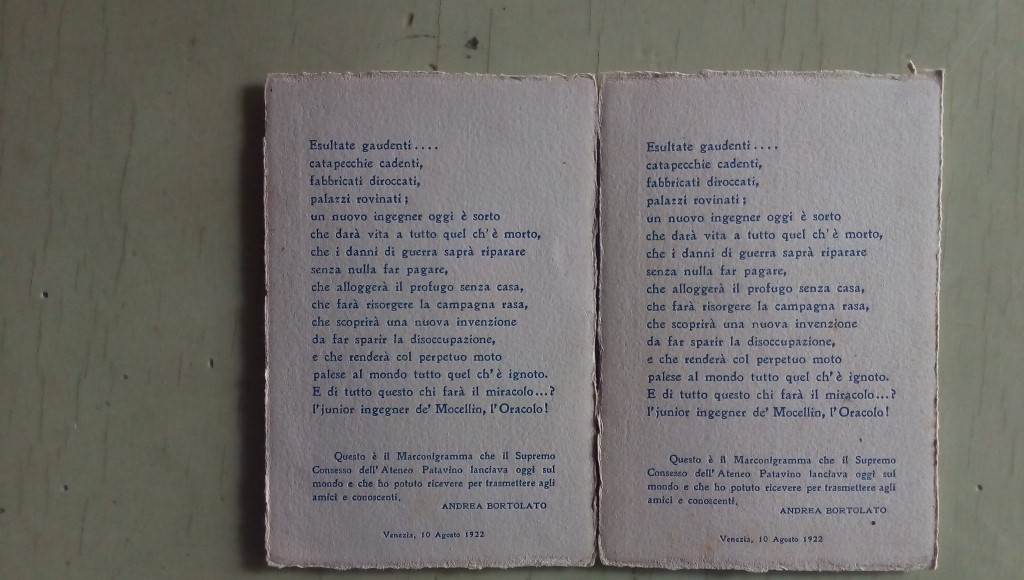 Esultate gaudenti....
catapecchie cadenti,
fabbricati diroccati,
palazzi rovinati;
un nuovo ingegner oggi è sorto
che darà vita a tutto quel ch'è morto,
che i danni di guerra saprà riparare
senza nulla far pagare,
che alloggerà il profugo senza casa,
che farà risorgere la campagna rasa,
che scoprirà una nuova invenzione
da far sparir la disoccupazione,
e che renderà col perpetuo moto
palese al mondo tutto quel ch'è ignoto.
E di tutto questo chi farà il miracolo...?
l'junior ingegner de' Mocellin, l'Oracolo!
Questo è il Marconigramma che il Supremo
Consesso dell'Ateneo Patavino lanciava oggi sul
mondo e che ho potuto ricevere per trasmettere agli
amici e conoscenti.
ANDREA BORTOLATO
Venezia, 10 Agosto 1922
Esultate gaudenti....
catapecchie cadenti,
fabbricati diroccati,
palazzi rovinati;
un nuovo ingegner oggi è sorto
che darà vita a tutto quel ch'è morto,
che i danni di guerra saprà riparare
senza nulla far pagare,
che alloggerà il profugo senza casa,
che farà risorgere la campagna rasa,
che scoprirà una nuova invenzione
da far sparir la disoccupazione,
e che renderà col perpetuo moto
palese al mondo tutto quel ch'è ignoto.
E di tutto questo chi farà il miracolo...?
l'junior ingegner de' Mocellin, l'Oracolo!
Questo è il Marconigramma che il Supremo
Consesso dell'Ateneo Patavino lanciava oggi sul
mondo e che ho potuto ricevere per trasmettere agli
amici e conoscenti.
ANDREA BORTOLATO
Venezia, 10 Agosto 1922